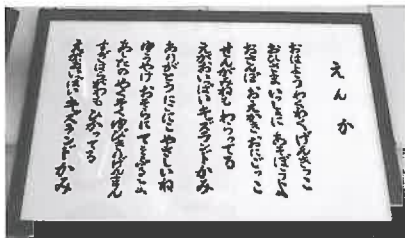 えんか
おはよう わくわく げんきっこ
おひさま いっしょに あそぼうよ
おさんぽ おえかき おにごっこ
せんがみねも わらってる
えがおいっぱい キッズランドかみ
ありがとう にこにこ やさしいね
ゆうやけ おそらに
あしたの やくそく ゆびきりげんまん
すぎはらがわも ひかってる
えがおいっぱい キッズランドかみ